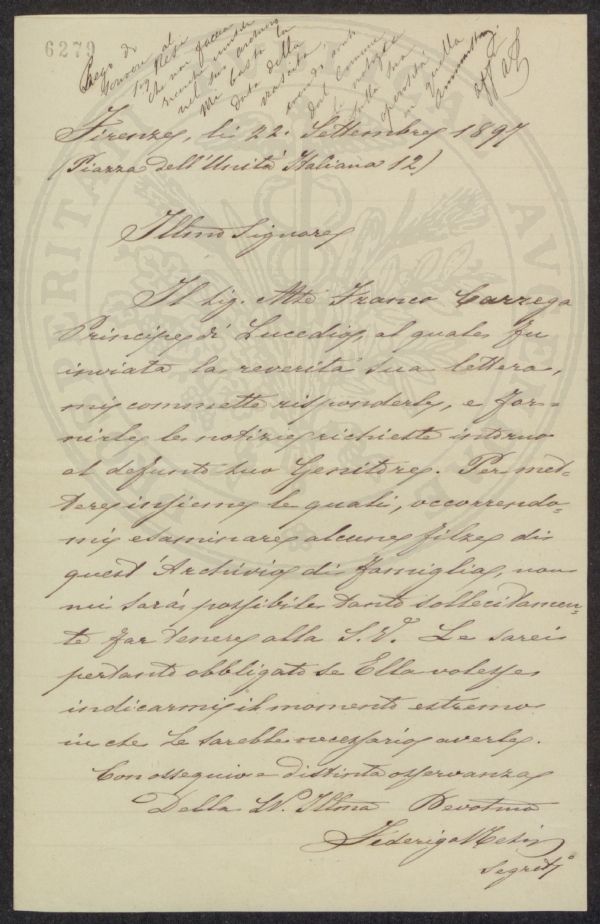 6279
Prego di
scrivere al
Sig Resi
che non faccia
ricerche inutili
nel suo archivio
Mi basta la
data della
nascita,
avendo avuto
dal Comune
le notizie
sulla sua
operosità
in quella
Firenze, li 22. Settembre 1897
(Piazza dell'Unità Italiana 12)
Illmo Signore
Il Sig. Mse Franco Carrega
Principe di Lucedio, al quale fu
inviata la reverita sua lettera,
mi commette risponderle, e for=
nirle le notizie richieste intorno
al defunto suo Genitore. Per met=
tere insieme le quali, occorrendo=
mi esaminare alcune filze di
quest'Archivio di famiglia, non
mi sarà possibile tanto sollecitamen=
te far tenere alla S.V. Le sarei
pertanto obbligato se Ella volesse
indicarmi il momento estremo
in che Le sarebbe necessario averle.
Con ossequio e distinta osservanza
Della S.V. Illma Devotmo
Federigo Resi
Segrio